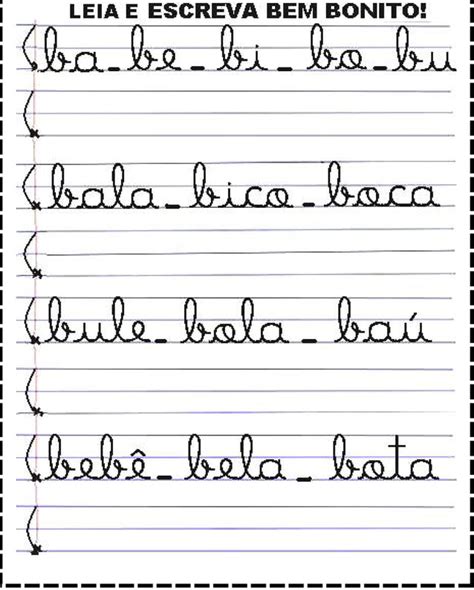 LEIA E ESCREVA BEM BONITO!
ba - be - bi - bo - bu
bala - bico - boca
bule - bola - baú
bebê - bela - bota